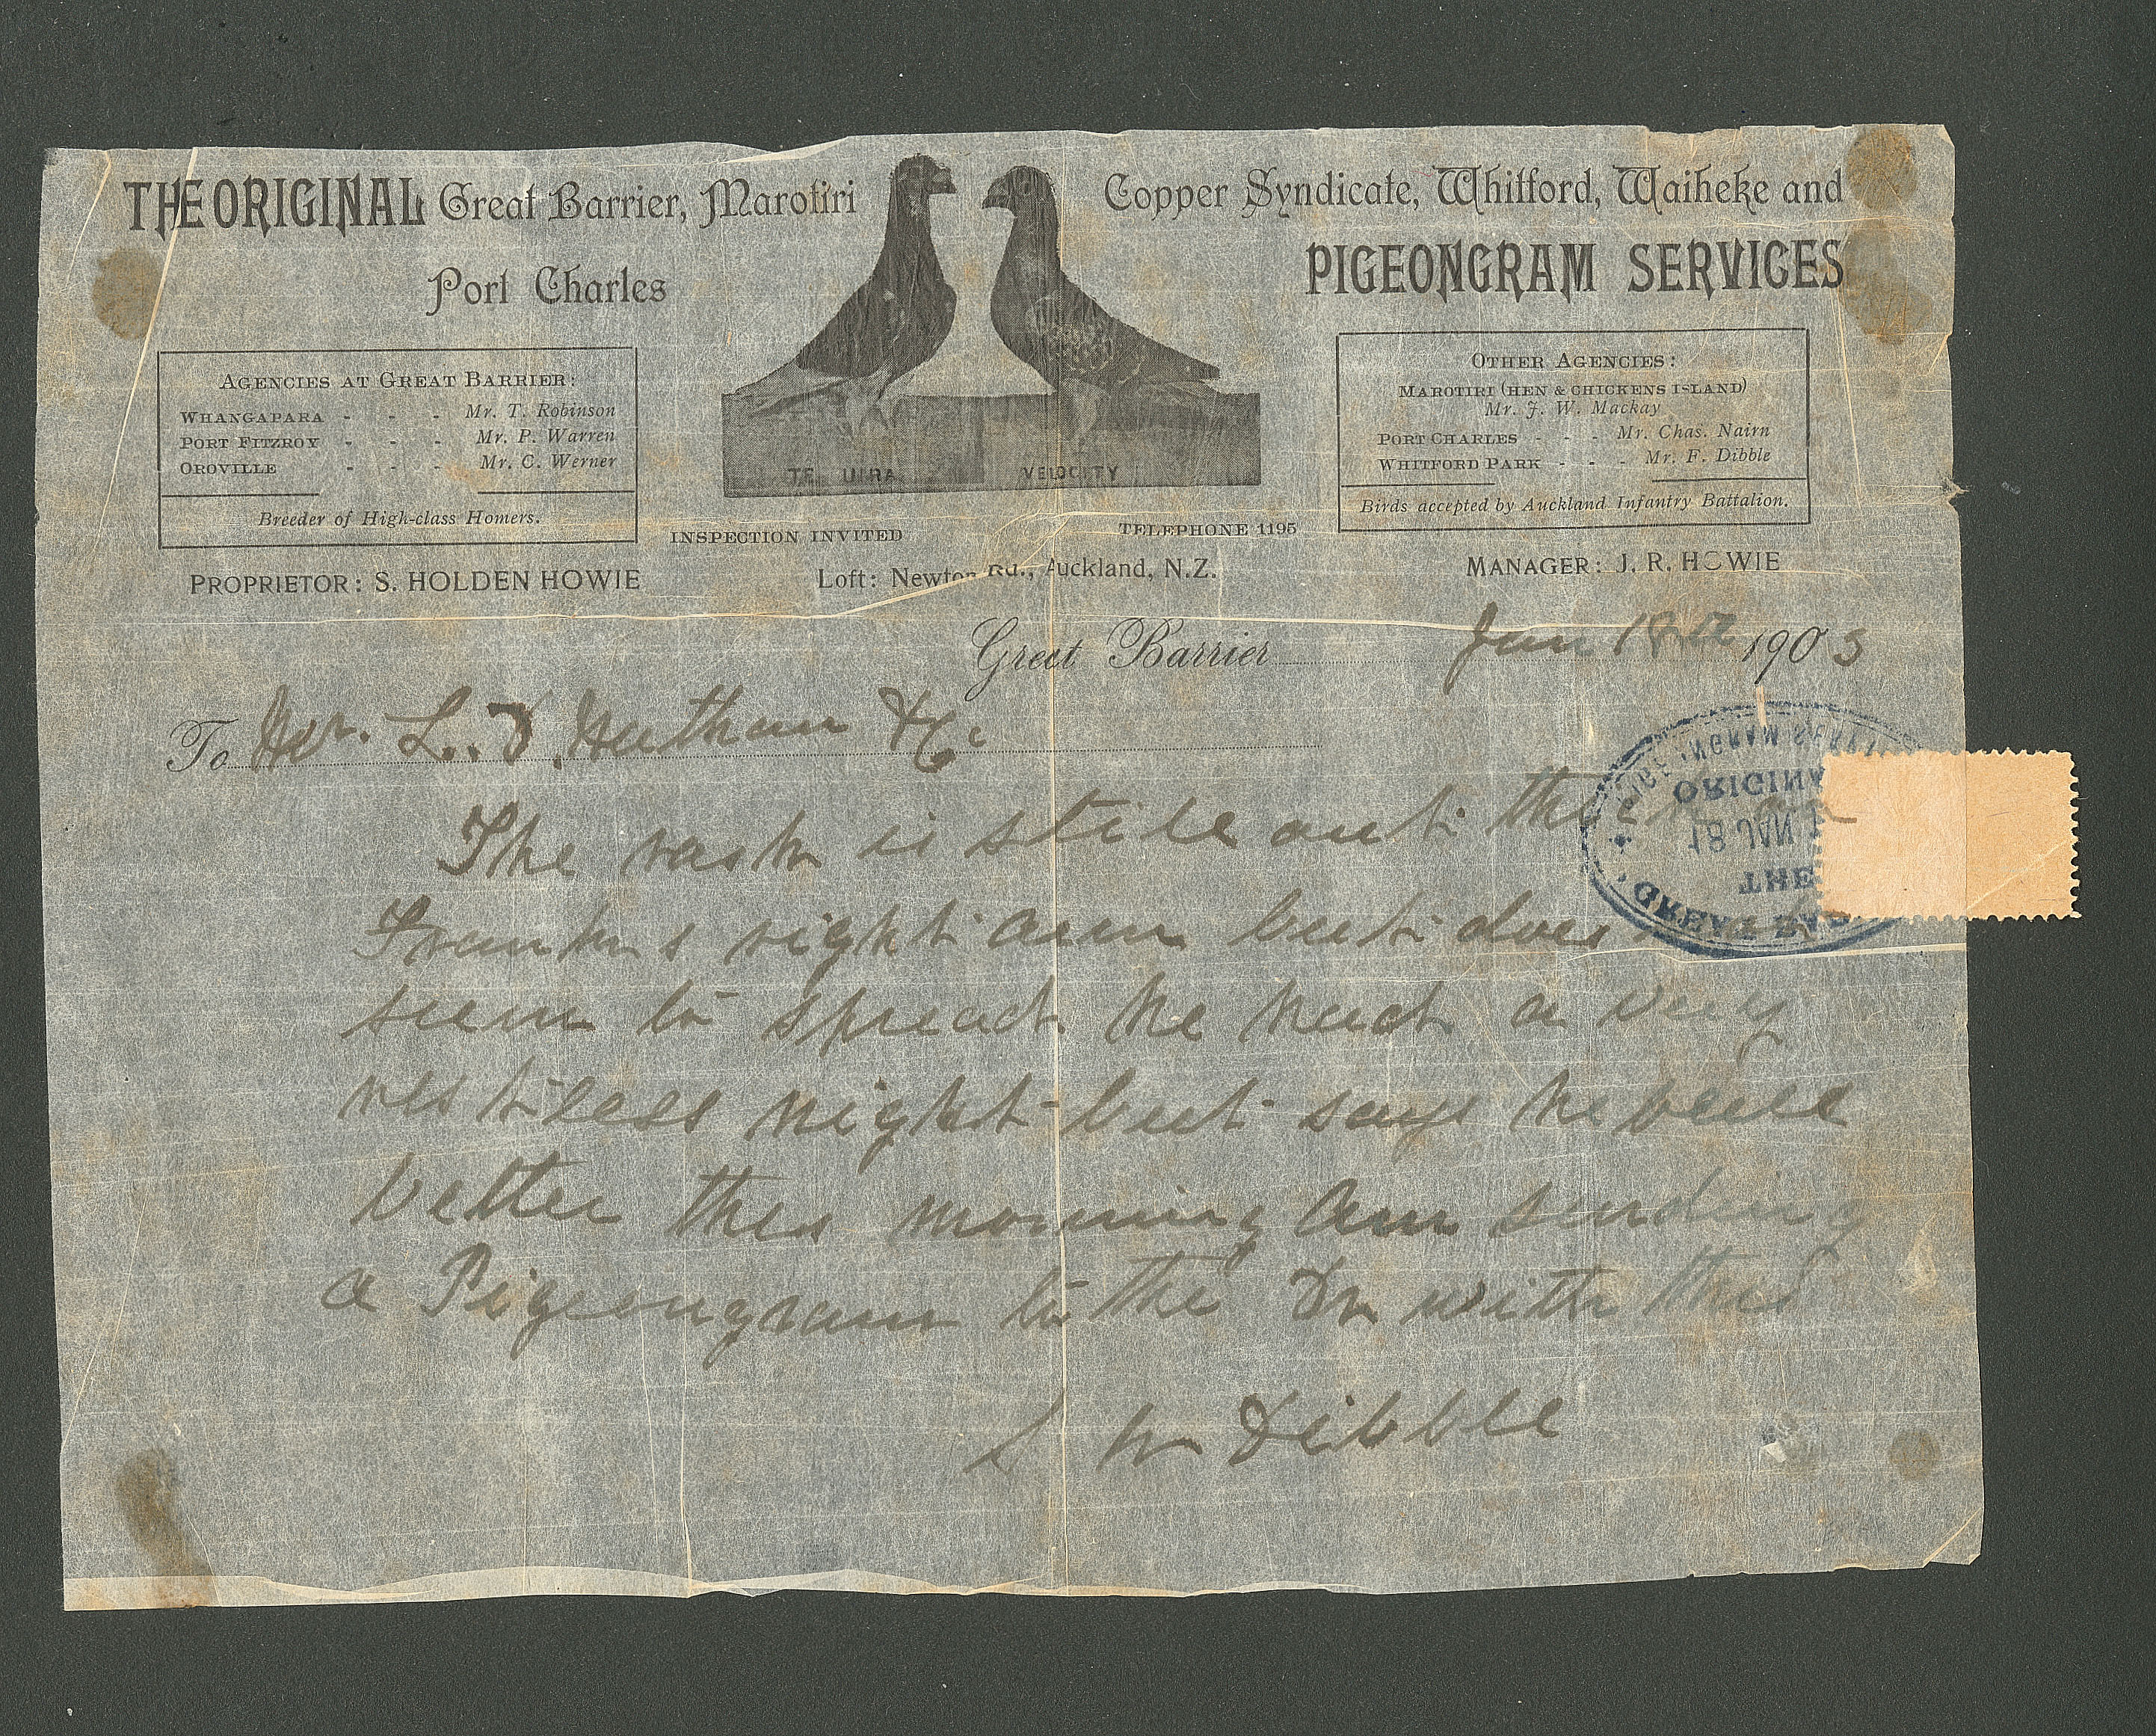 THE ORIGINAL Great Barrier, Marotiri Copper Syndicate, Whitford, Waiheke and
Port Charles PIGEONGRAM SERVICES
AGENCIES AT GREAT BARRIER:
WHANGAPARA - - - Mr. T. Robinson
PORT FITZROY - - - Mr. P. Warren
OROVILLE - - - Mr. C. Werner
Breeder of High-class Homers.
TE UIRA VELOCITY
OTHER AGENCIES:
MAROTIRI (HEN & CHICKENS ISLAND)
Mr. J. W. Mackay
PORT CHARLES - - - Mr. Chas. Nairn
WHITFORD PARK - - - Mr. F. Dibble
Birds accepted by Auckland Infantry Battalion.
INSPECTION INVITED TELEPHONE 1195
PROPRIETOR: S. HOLDEN HOWIE Loft: Newton Rd., Auckland, N.Z. MANAGER: J. R. HOWIE
Great Barrier Jan 18th 1903
To Mr. L. D. Nathan & Co
The rash is still out
Franks right arm but does
seem to spread he had a very
restless night but says he
better this morning Am sending
a Pigeongram to the Dr with this
W Dibble
GREAT BA
THE
18 JAN
ORIGINA